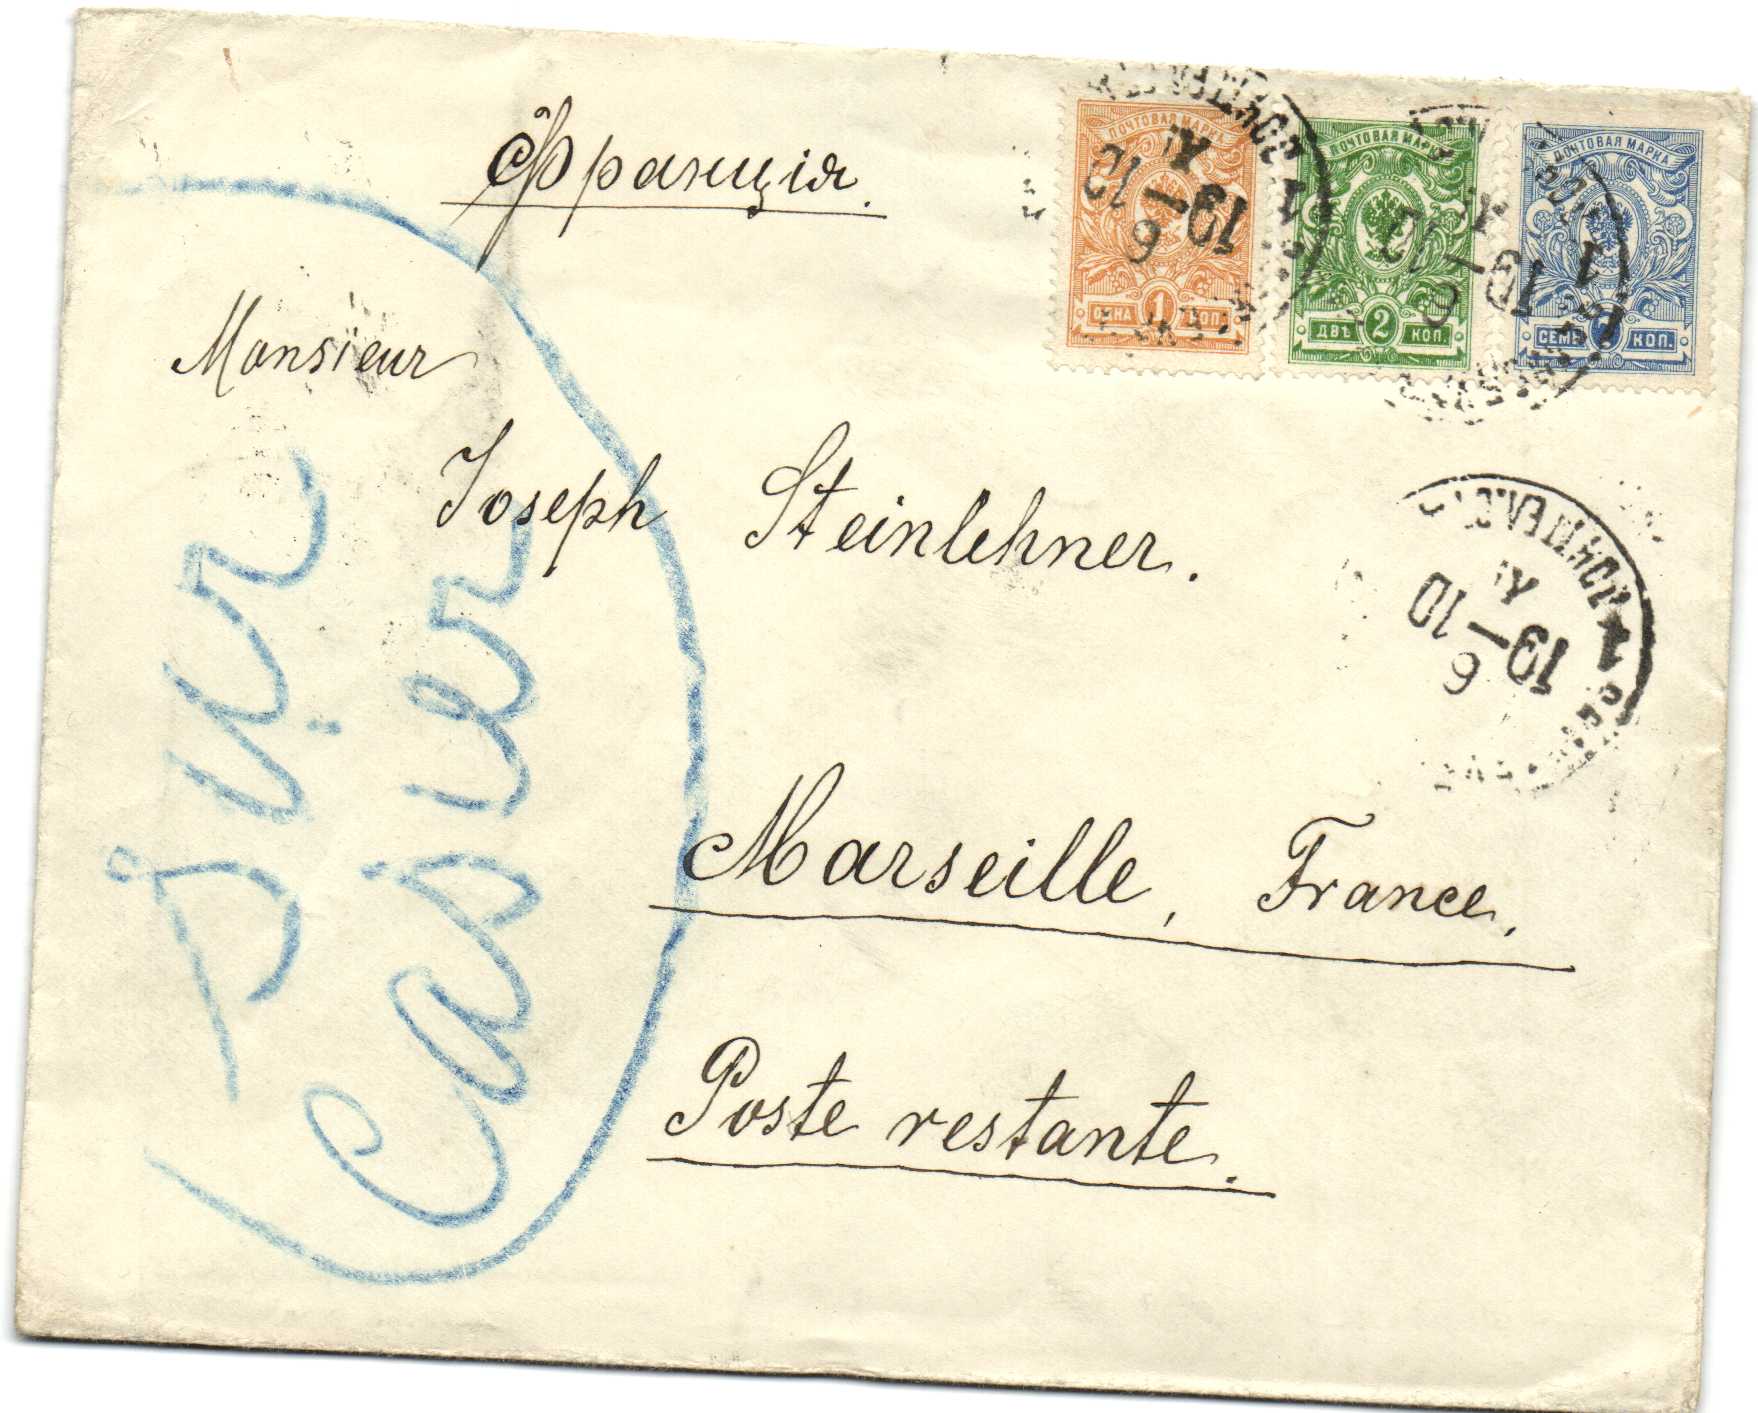 Франція.
ПОЧТОВАЯ МАРКА
ОДНА 1 КОП.
ПОЧТОВАЯ МАРКА
ДВѢ 2 КОП.
ПОЧТОВАЯ МАРКА
СЕМЬ 7 КОП.
Monsieur
Joseph Steinlehner.
Marseille, France.
Poste restante.
Sur
Casier
1
19
6
10